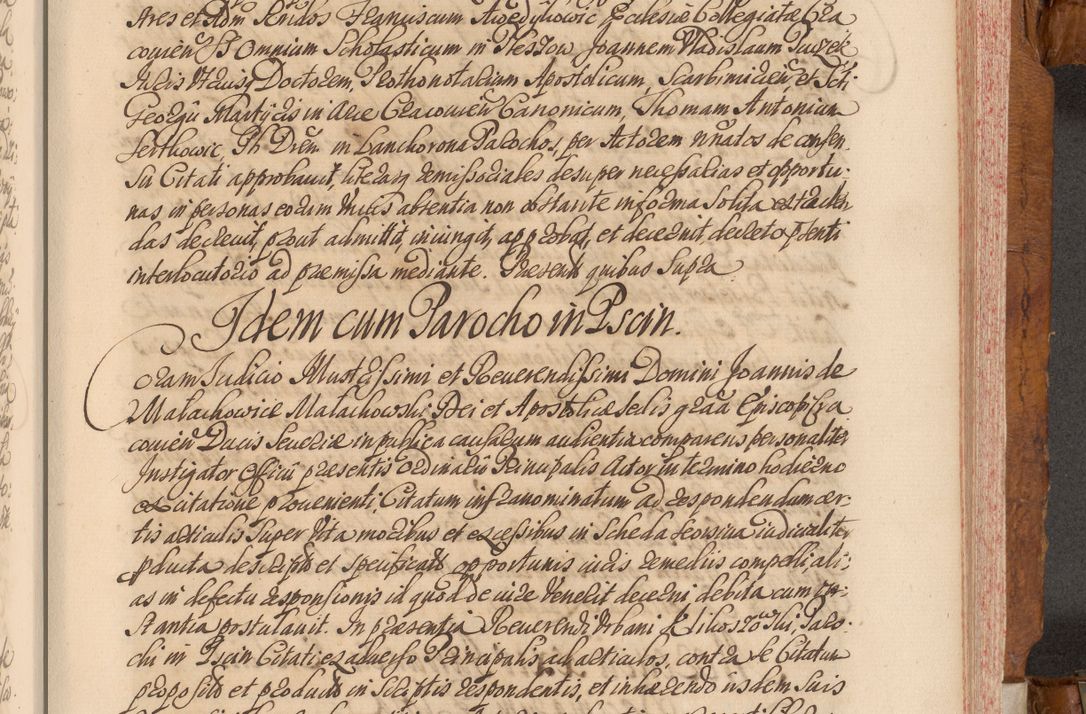 stres et Adm Rndos Franciscum Awedykowic Ecclesiæ Collegiatæ Cra
covien SS Omnium Scholasticum in Teszow Joannem Vladislaum
Juris Utriusq Doctorem, Prothonotarium Apostolicum, Scarbimirien, et Sti
Georgii Martyris in Arce Cracovien Canonicum, Thomam Antonium
Ph Drem in Lanchorona Parochos, per Actorem nnatos de consen
su Citati approbavit, literasq remissoriales desuper necessarias et opportu
nas in personas eorum huius absentia non obstante in forma solita extraden
das decrevit, prout admittit, iniungit, approbat, et decernit decreto pnti
interlocutorio ad præmissa mediante. Præsent quibus supra
Idem cum Parocho in Pscin.
Coram Judicio Illustrissimi et Reverendissimi Domini Joannis de
Małachowice Małachowski Dei et Apostolicæ Sedis graa Episcopi Cra
covien Ducis Severiæ in publica causarum audientia comparens personaliter
Instigator Officii præsentis ordinarii Principalis Actor in termino hodierno
ex citatione provenienti, Citatum infranominatum ad respondendum cer
tis articulis super vita moribus et excessibus in scheda seorsiva iudicialiter
pducta descripts et specificats opportunis iuris remediis compelli, ali:
as in defectu responsionis id quod de iure venerit decerni debita cum in
stantia postulavit. In præsentia Reverendi Urbani Paro:
chi in Pscin Citati ex adverso Principalis ad articulos, contra se Citatum
proposito et producto in scriptis respondentis, et inhærendo iisdem suis